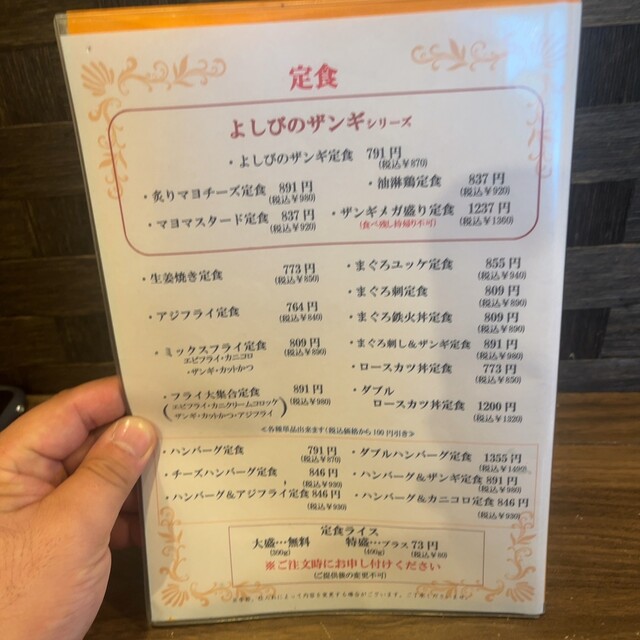 定食
よしびのザンギシリーズ
・よしびのザンギ定食 791円
(税込¥870)
・炙りマヨチーズ定食 891円
(税込¥980)
・油淋鶏定食 837円
(税込¥920)
・マヨマスタード定食 837円
(税込¥920)
・ザンギメガ盛り定食 1237円
(食べ残し持帰り不可) (税込¥1360)
・生姜焼き定食 773円
(税込¥850)
・アジフライ定食 764円
(税込¥840)
・ミックスフライ定食 809円
エビフライ・カニコロ (税込¥890)
・ザンギ・カットかつ
・フライ大集合定食 891円
(エビフライ・カニクリームコロッケ (税込¥980)
ザンギ・カットかつ・アジフライ)
・まぐろユッケ定食 855円
(税込¥940)
・まぐろ刺定食 809円
(税込¥890)
・まぐろ鉄火丼定食 809円
(税込¥890)
・まぐろ刺し&ザンギ定食 891円
(税込¥980)
・ロースカツ丼定食 773円
(税込¥850)
・ダブル
ロースカツ丼定食 1200円
(税込¥1320)
≪各種単品出来ます(税込価格から100円引き)≫
・ハンバーグ定食 791円
(税込¥870)
・チーズハンバーグ定食 846円
(税込¥930)
・ハンバーグ&アジフライ定食 846円
(税込¥930)
・ダブルハンバーグ定食 1355円
(税込¥1490)
・ハンバーグ&ザンギ定食 891円
(税込¥980)
・ハンバーグ&カニコロ定食 846円
(税込¥930)
定食ライス
大盛…無料 特盛…プラス73円
(300g) (400g) (税込¥80)
※ご注文時にお申し付けください
(ご提供後の変更不可)